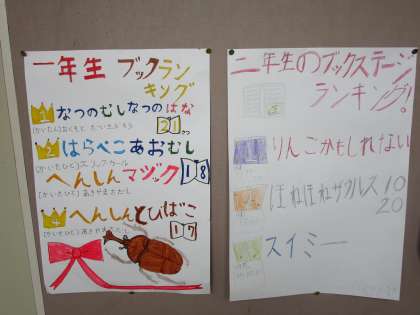 一年生 ブックラン
キング
1 なつのむしなつのはな
21
2 はらぺこあおむし
(かいたひと)エリック・カール
へんしんマジック 18
(かいたひと)あきやまただし
4 へんしんとびばこ
(かいたひと)あきやまただし 17
二年生のブックステージ
ランキング!
1 りんごかもしれない
ほねほねザウルス10
20
スイミー